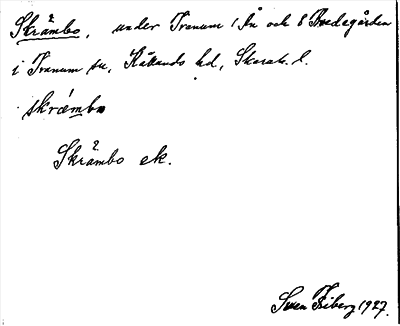 Skrämbo, under Tranum 1 Ån och 8 Bredegården
i Tranum sn, Kållands hd, Skarab. l.
skræmbo
Skrämbo ek.
Sven Friberg 1927.